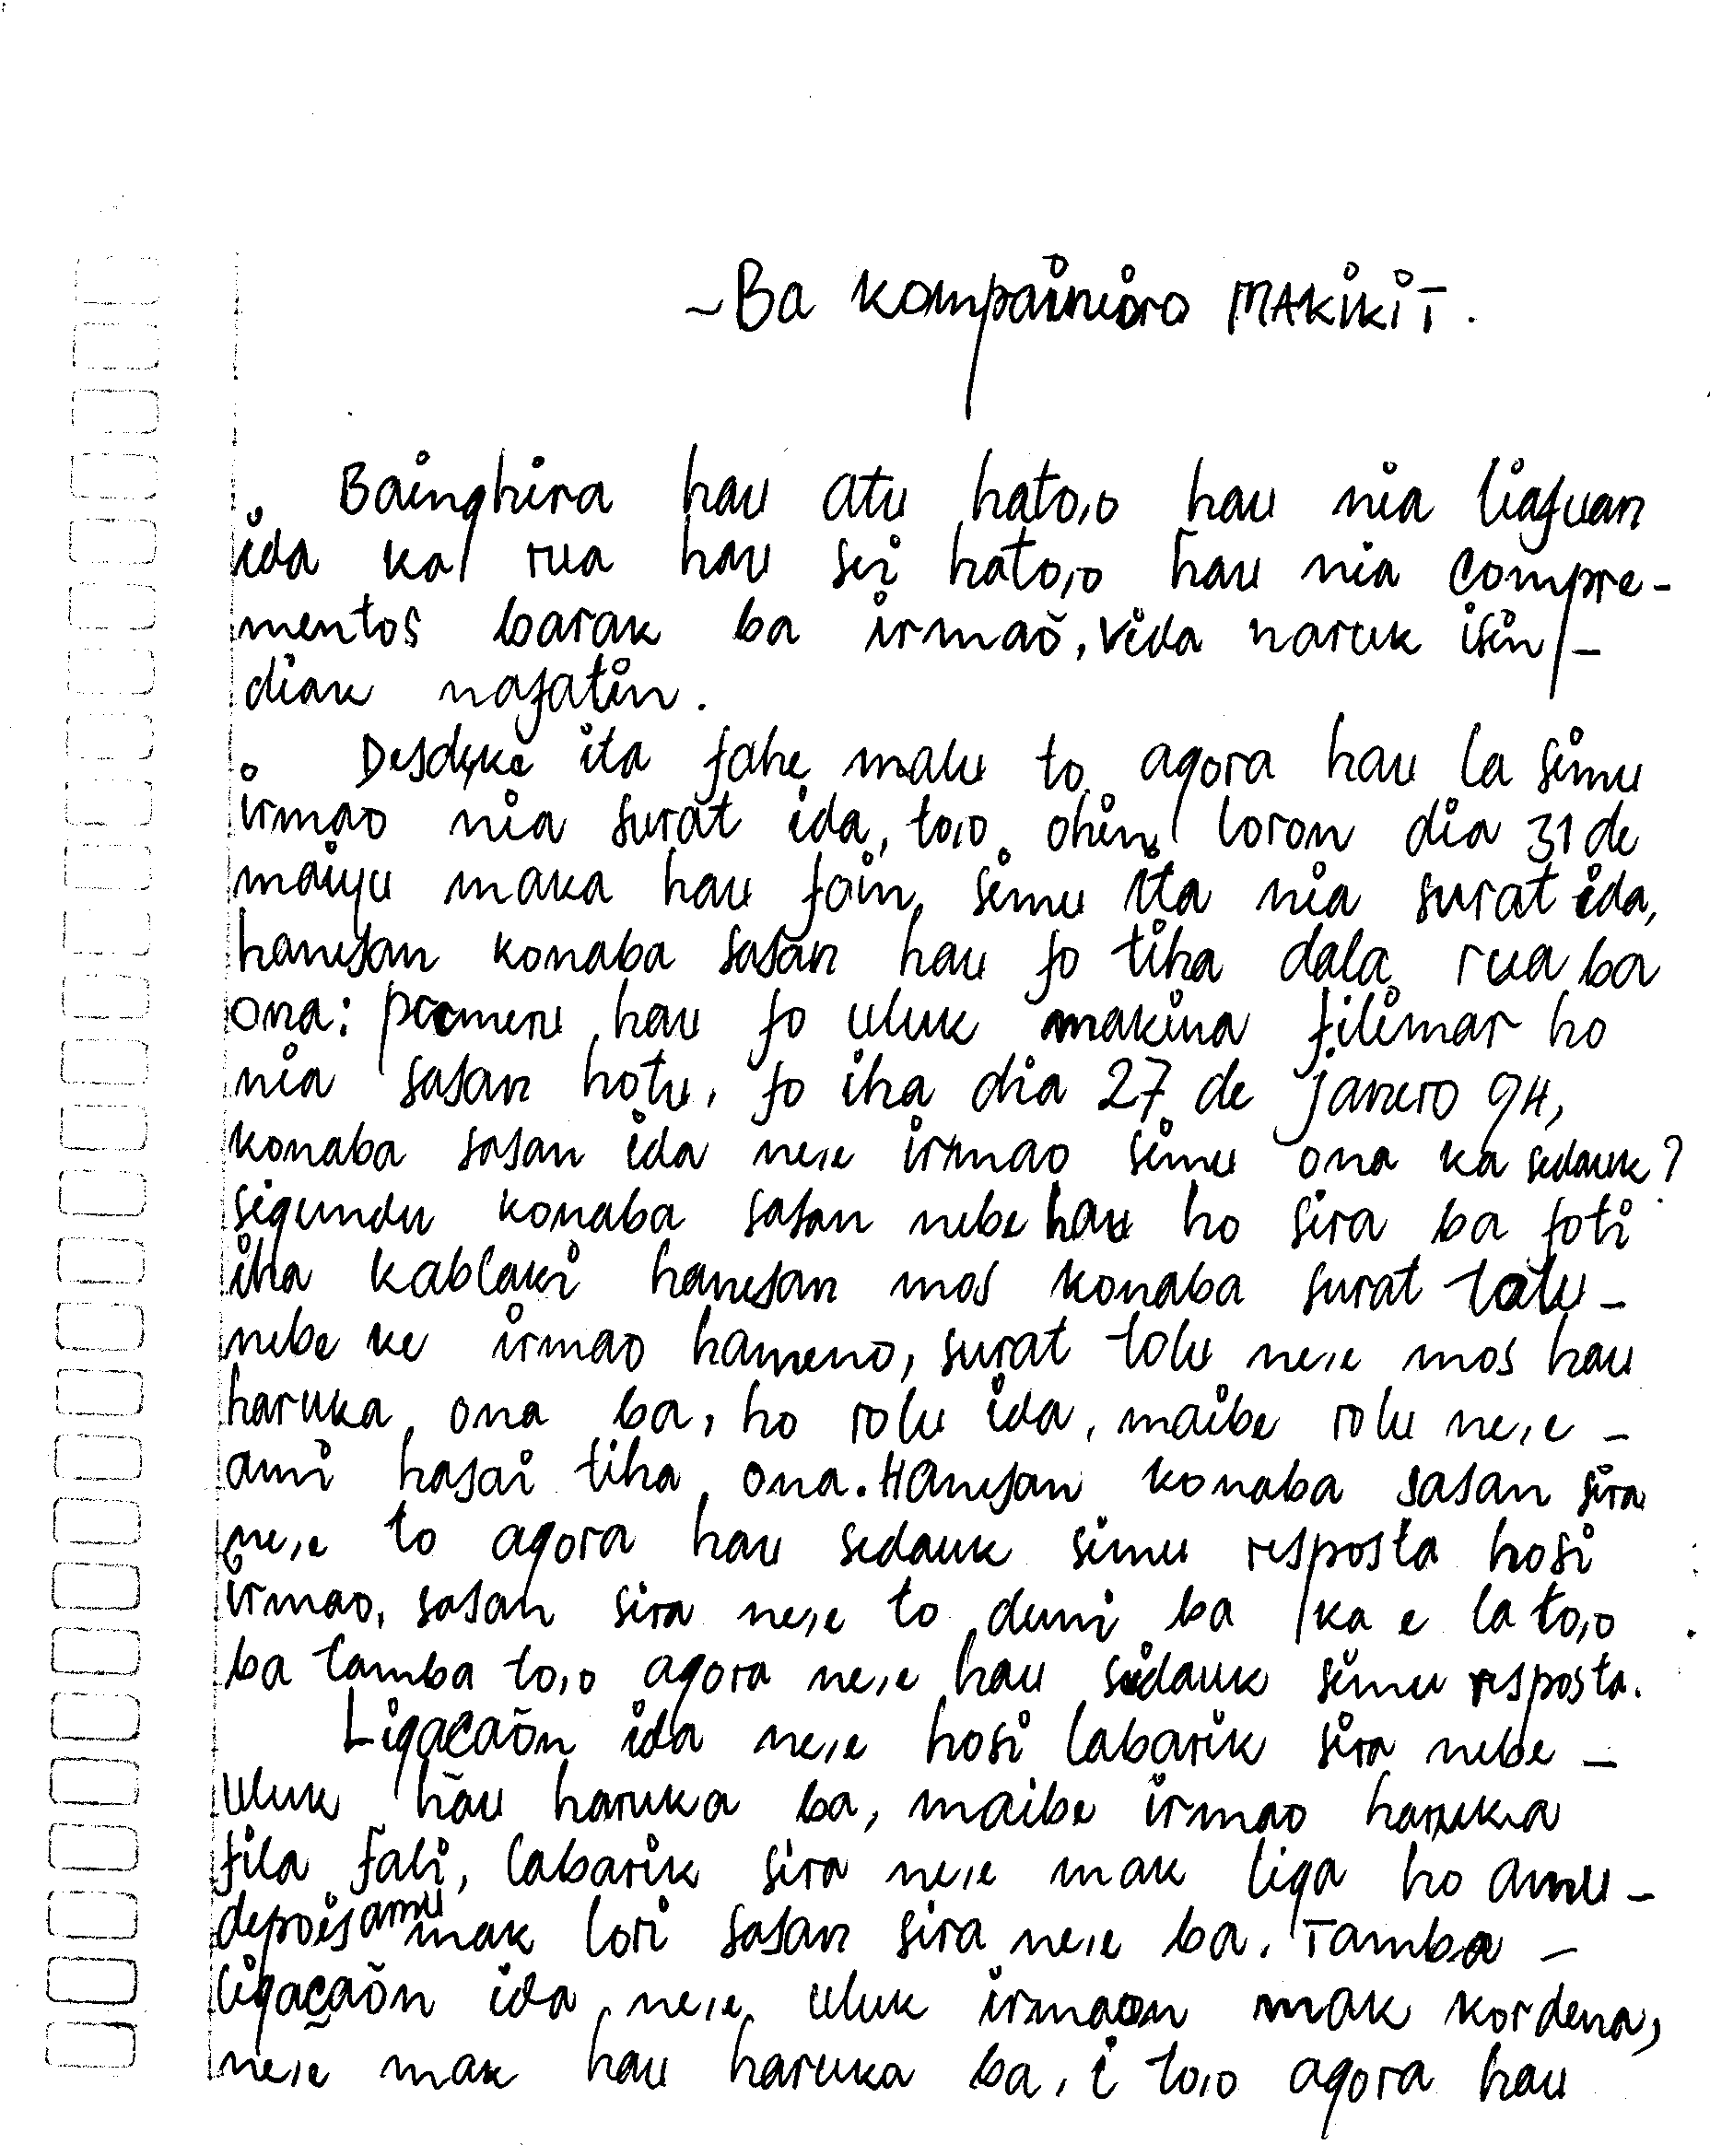 ~Ba kompainiero MAKIKIT.
Bainghira hau atu hato,o hau nia liafuan
ida ka rua hau sei hato,o hau nia compre-
mentos barak ba irmaõ, vida naruk isin-
diak nafatin.
Desdeke ita fahe malu to agora hau la simu
irmao nia surat ida, to,o ohin loron dia 31 de
maiyu maka hau foin simu ita nia surat ida,
hanesan konaba sasan hau fo tiha dala rua ba
ona: primeru hau fo uluk makina filimar ho
nia sasan hotu, fo iha dia 27 de janero 94,
konaba sasan ida ne,e irmao simu ona ka sedauk?
sigundu konaba sasan nebe hau ho sira ba foti
iha kablaki hanesan mos konaba surat tolu-
nebe ke irmao hameno, surat tolu ne,e mos hau
haruka ona ba, ho rolu ida, maibe rolu ne,e -
ami hasai tiha ona. Hanesan konaba sasan sira
ne,e to agora hau sedauk simu resposta hosi
irmao, sasan sira ne,e to duni ba ka e la to,o
ba tamba to,o agora ne,e hau sedauk simu resposta.
Ligacaõn ida ne,e hosi labarik sira nebe -
uluk hãu haruka ba, maibe irmao haruka
fila fali, labarik sira ne,e mak liga ho amu -
depois amu mak lori sasan sira ne,e ba. Tamba -
ligaçaõn ida ne,e uluk irmaon mak kordena,
ne,e mak hau haruka ba, i to,o agora hau